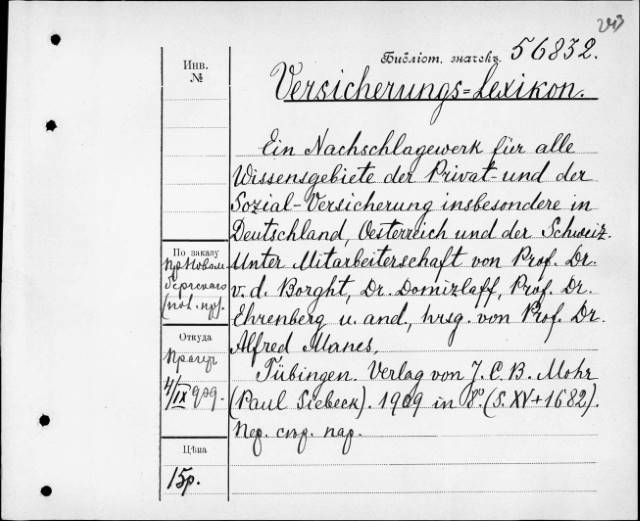 Библіот. значекъ 56832.
Инв.
№
Versicherungs=Lexikon.
Ein Nachschlagewerk für alle
Wissensgebiete der Privat- und der
Sozial-Versicherung insbesondere in
Deutschland, Oesterreich und der Schweiz.
Unter Mitarbeiterschaft von Prof. Dr.
v. d. Borght, Dr. Domizlaff, Prof. Dr.
Ehrenberg u. and., hrsg. von Prof. Dr.
Alfred Manes,
Tübingen. Verlag von J. C. B. Mohr
(Paul Siebeck). 1909 in 8°. (S. XV+1682).
Пер. спр. пар.
По заказу
Откуда
4/IX 909.
Цѣна
15р.